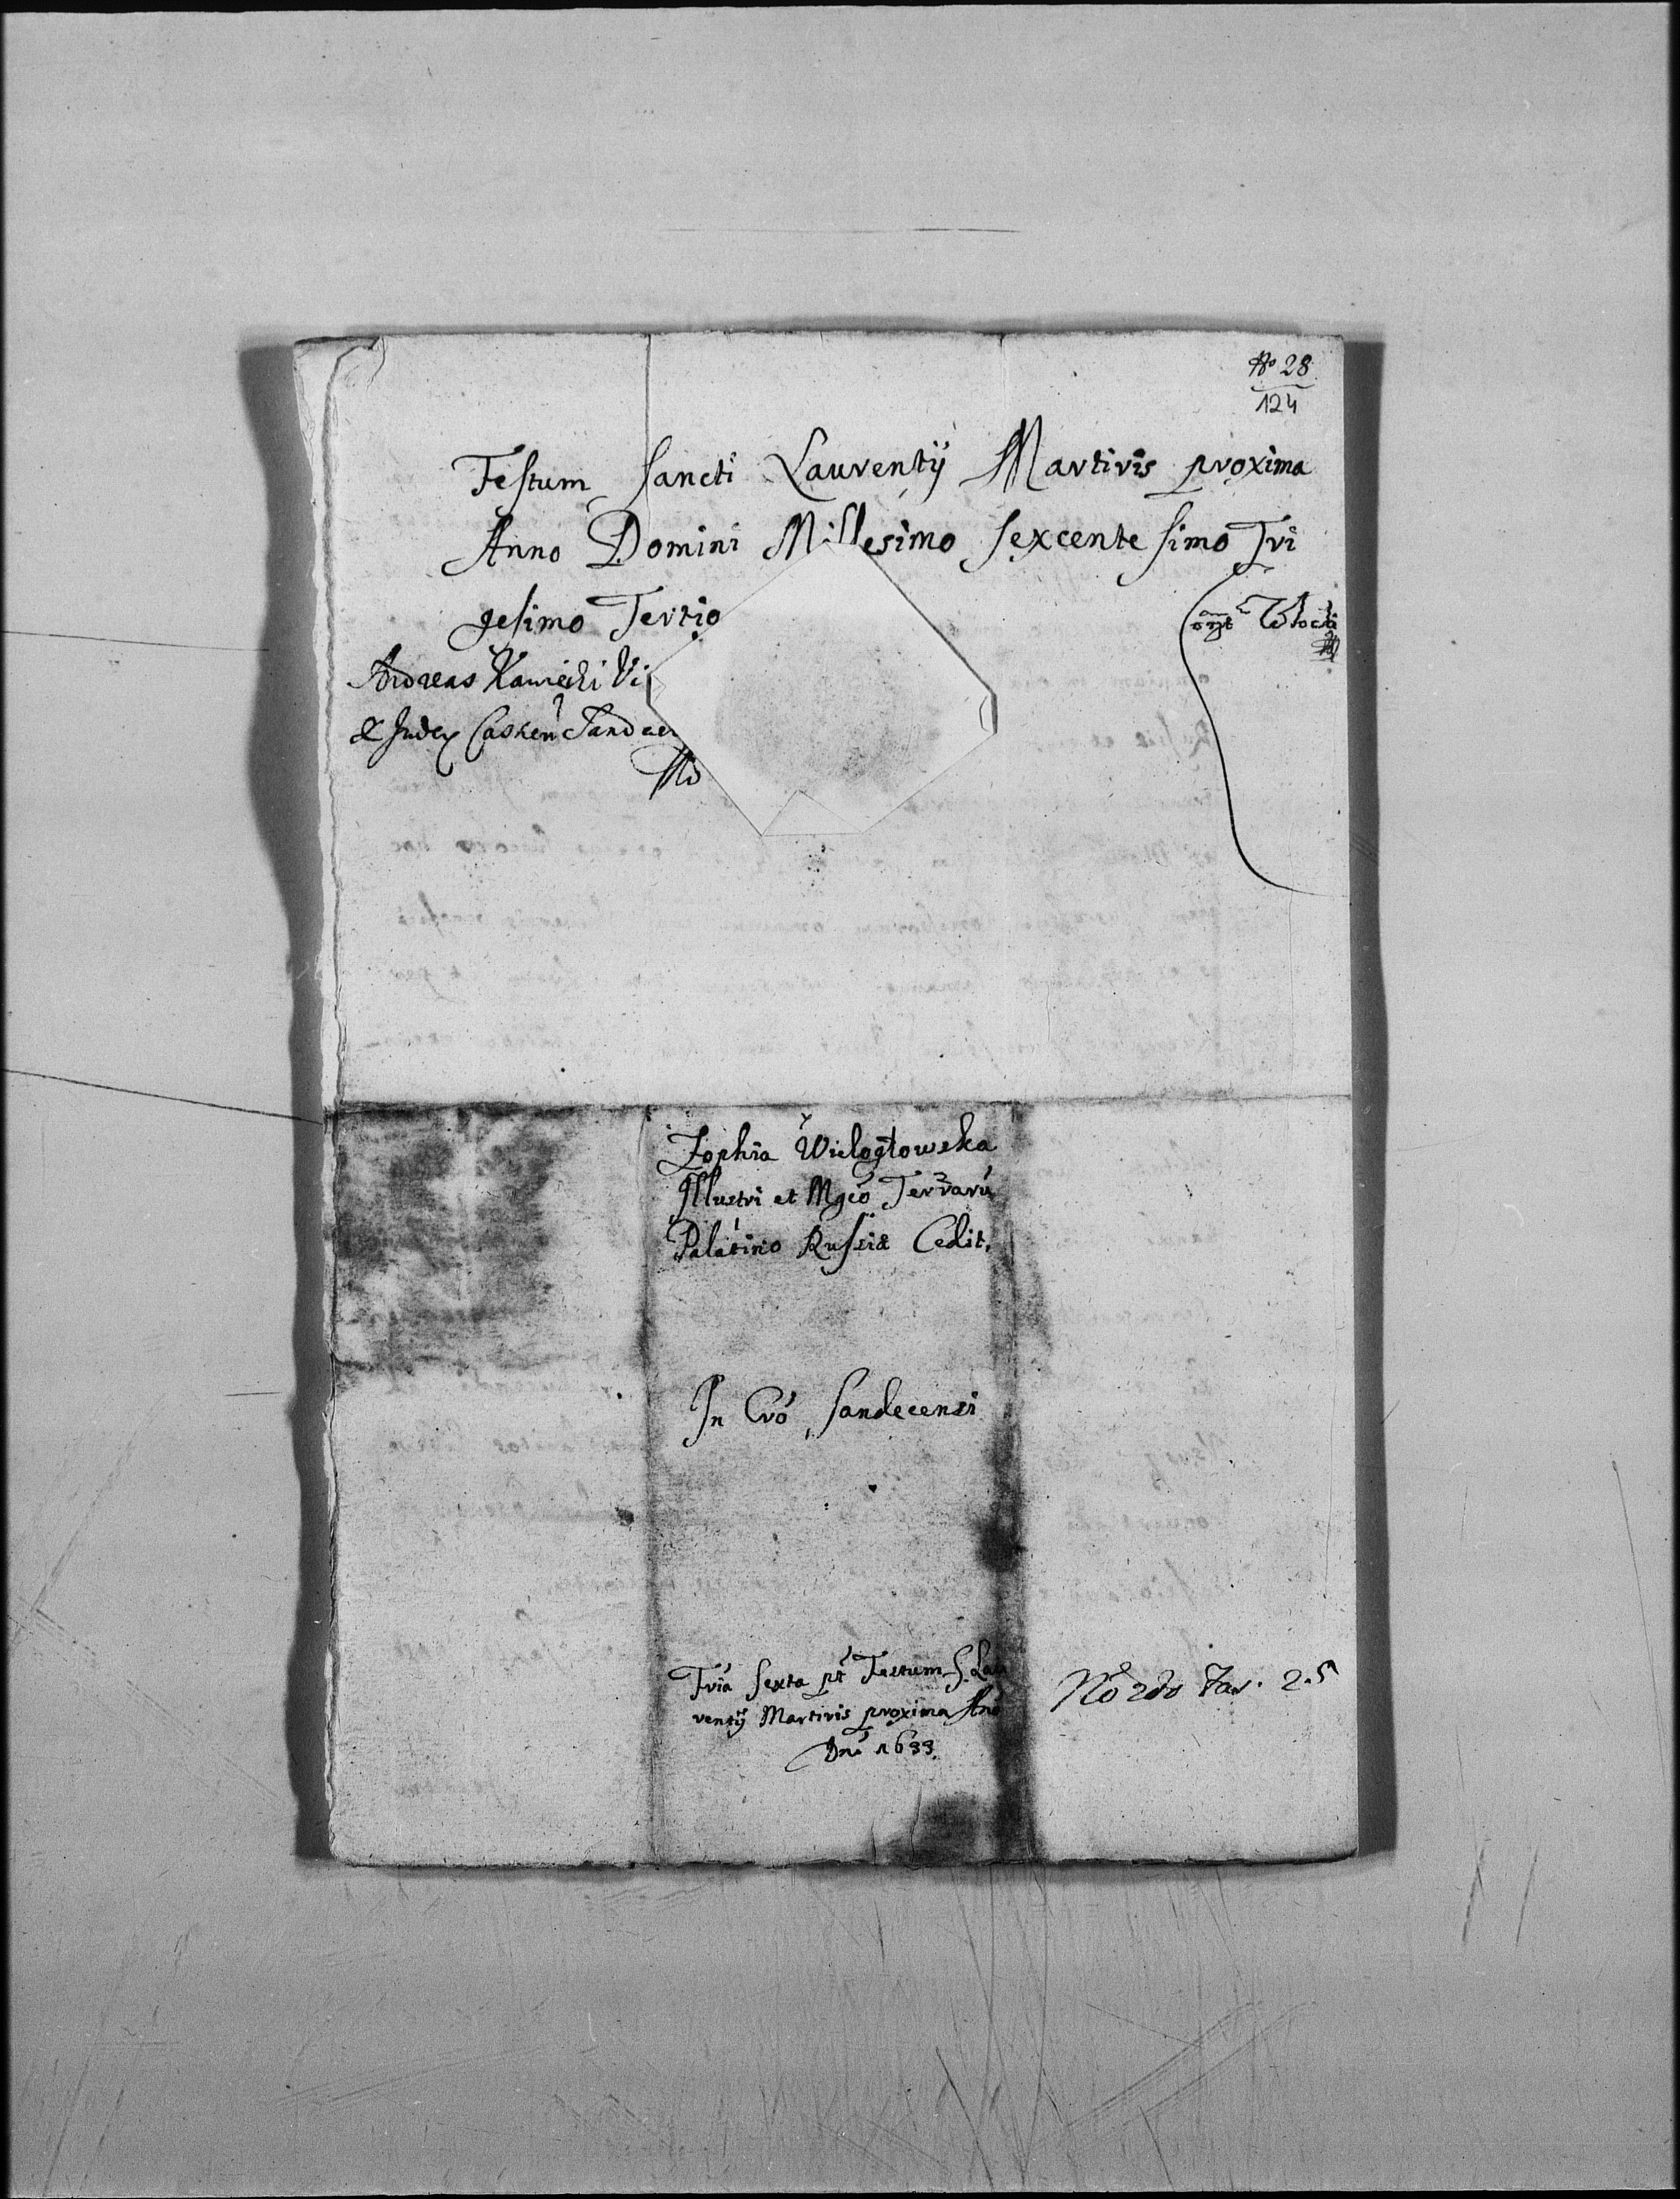 No 28
124
Festum Sancti Laurentÿ Martiris proxima
Anno Domini Millesimo Sexcente simo Tri
gesimo Tertio
Andreas Kawiecki Vi
& Judex Castren Sandec
Zophia Wielogłowska
Illustri et Mgco Terrarū
Palatino Russiæ Cedit.
In Cro Sandecensi
Fria Sexta pt Festum S. Lau
rentÿ Martiris proxima Ano
Dni 1633.
No 2do Fas. 25